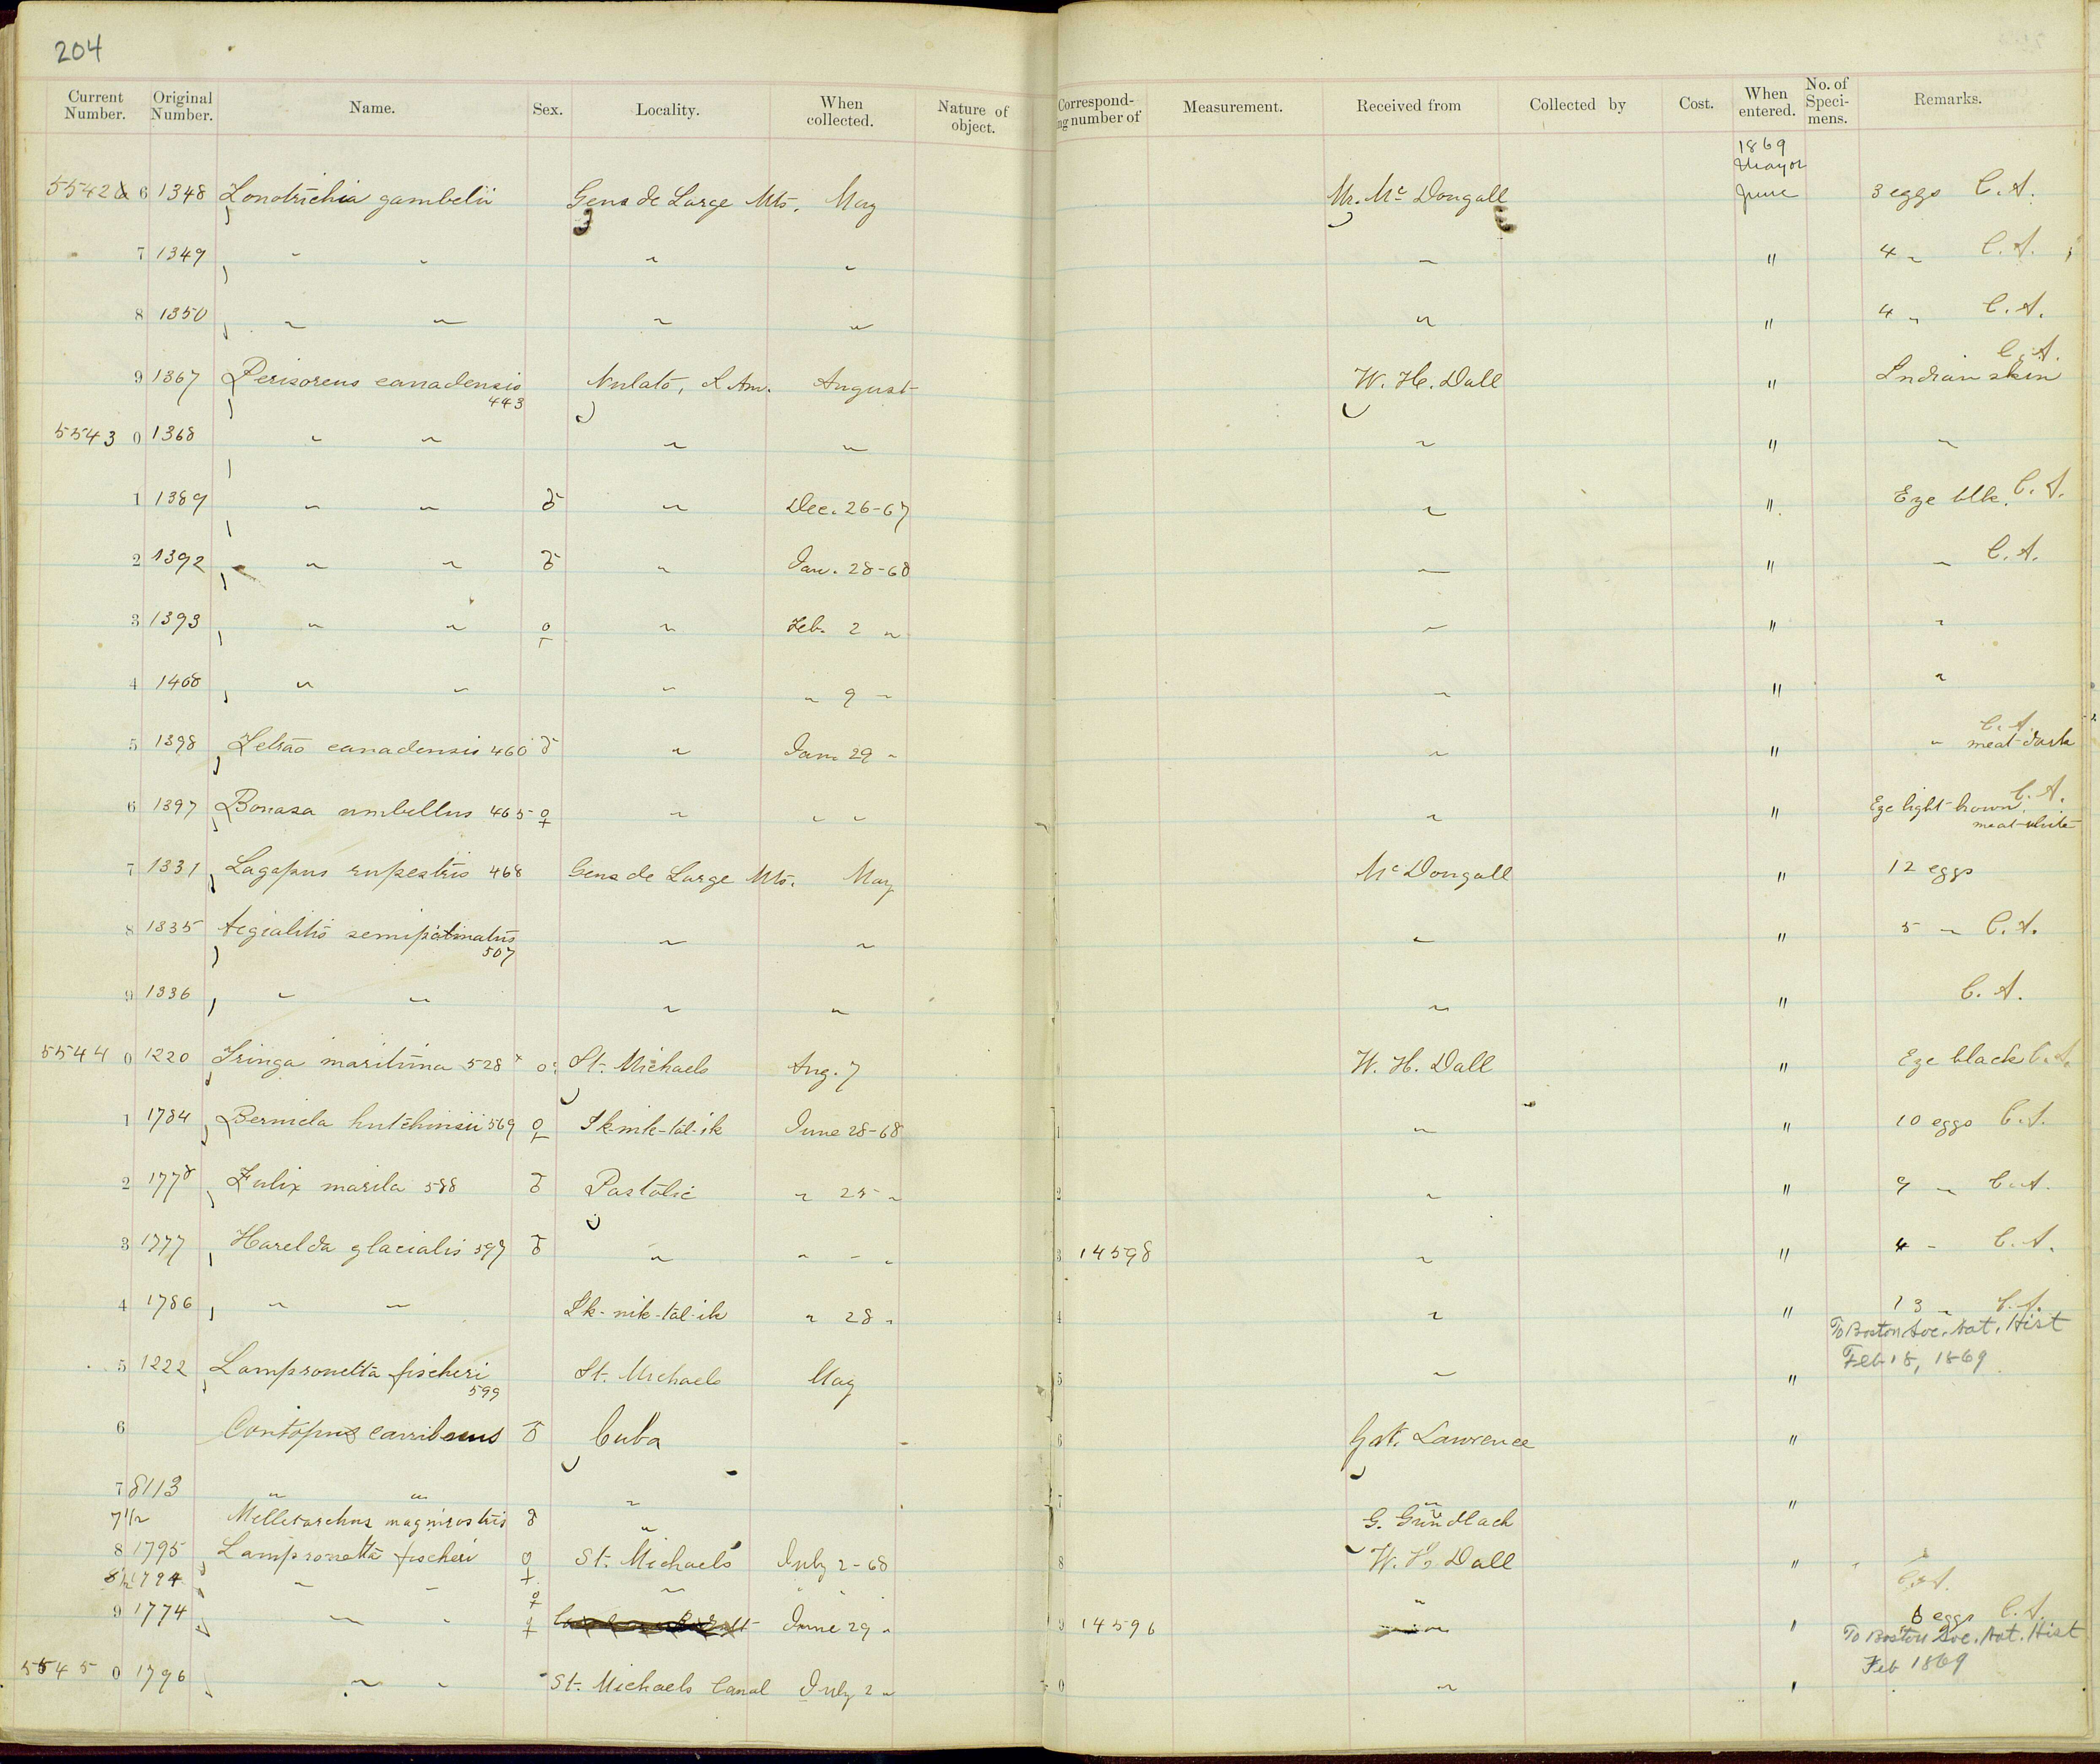 204
Current Number. Original Number. Name. Sex. Locality. When collected. Nature of object. Correspond-ing number of Measurement. Received from Collected by Cost. When entered. No. of Speci-mens. Remarks.
1869
May or
5542 6 1348 Zonotrichia gambelii Gens de Large Mts. May Mr. McDougall June 3 eggs C.A.
7 1349 " " " " " " 4 " C.A.
8 1350 " " " " " " 4 " C.A.
C.A.
9 1367 Perisoreus canadensis Nulato, R. Am. August W. H. Dall " Indian skin
443
5543 0 1368 " " " " " " "
1 1389 " " ♂ " Dec. 26-67 " " Eye blk. C.A.
2 1392 " " ♂ " Jan. 28-68 " " " C.A.
3 1393 " " ♀ " Feb. 2 " " " "
4 1408 " " " " 9 " " " "
C.A.
5 1398 Tetrao canadensis 460 ♂ " Jan. 29 " " " " meat-dark
6 1397 Bonasa umbellus 465 ♀ " " " " " Eye light-brown C.A.
meat-white
7 1331 Lagopus rupestris 468 Gens de Large Mts. May McDougall " 12 eggs
8 1335 Aegialitis semipalmatus " " " " 5 " C.A.
507
9 1336 " " " " " " C.A.
5544 0 1220 Tringa maritima 528 St. Michaels Aug. 7 W. H. Dall " Eye black C.A.
1 1784 Bernicla hutchinsii 569 ♀ Ik-nik-tal-ik June 28-68 " " 10 eggs C.A.
2 1778 Fulix marila 588 ♂ Pastolic " 25 " " " 9 " C.A.
3 1777 Harelda glacialis 597 ♂ " " " " 14598 " " 4 " C.A.
4 1786 " " Ik-nik-tal-ik " 28 " " " 13 " C.A.
To Boston Soc. Nat. Hist
Feb 18, 1869
5 1222 Lampronetta fischeri St. Michaels May " "
599
6 Contopus carribaeus ♂ Cuba Geo. Lawrence "
7 8113 " " " " "
7 1/2 Melletarchus magnirostris ♂ " G. Gundlach
8 1795 Lampronetta fischeri ♀ St. Michaels July 2-68 W. H. Dall "
8 1/2 1794 " " ♀ " " " " C.A.
9 1774 " " ♀ June 29 " 14596 " " 6 eggs C.A.
To Boston Soc. Nat. Hist
Feb 1869
5545 0 1796 " " St. Michaels Canal July 2 " " "